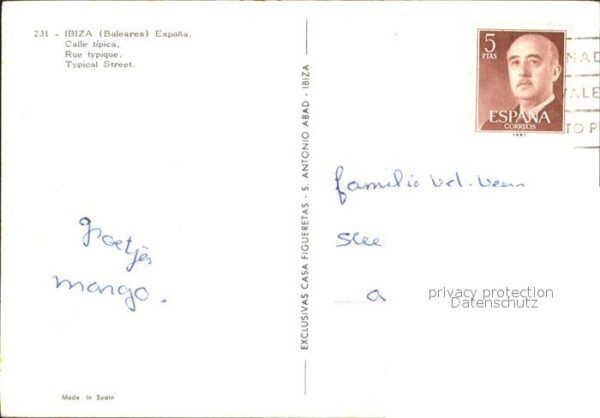 231 - IBIZA (Baleares) España.
Calle típica.
Rue typique.
Typical Street.
5
PTAS
ESPAÑA
CORREOS
NAD
VALE
TO P
EXCLUSIVAS CASA FIGUERETAS - S. ANTONIO ABAD - IBIZA
familie v.d. Veen
groetjes
margo.
a
privacy protection
Datenschutz
Made in Spain